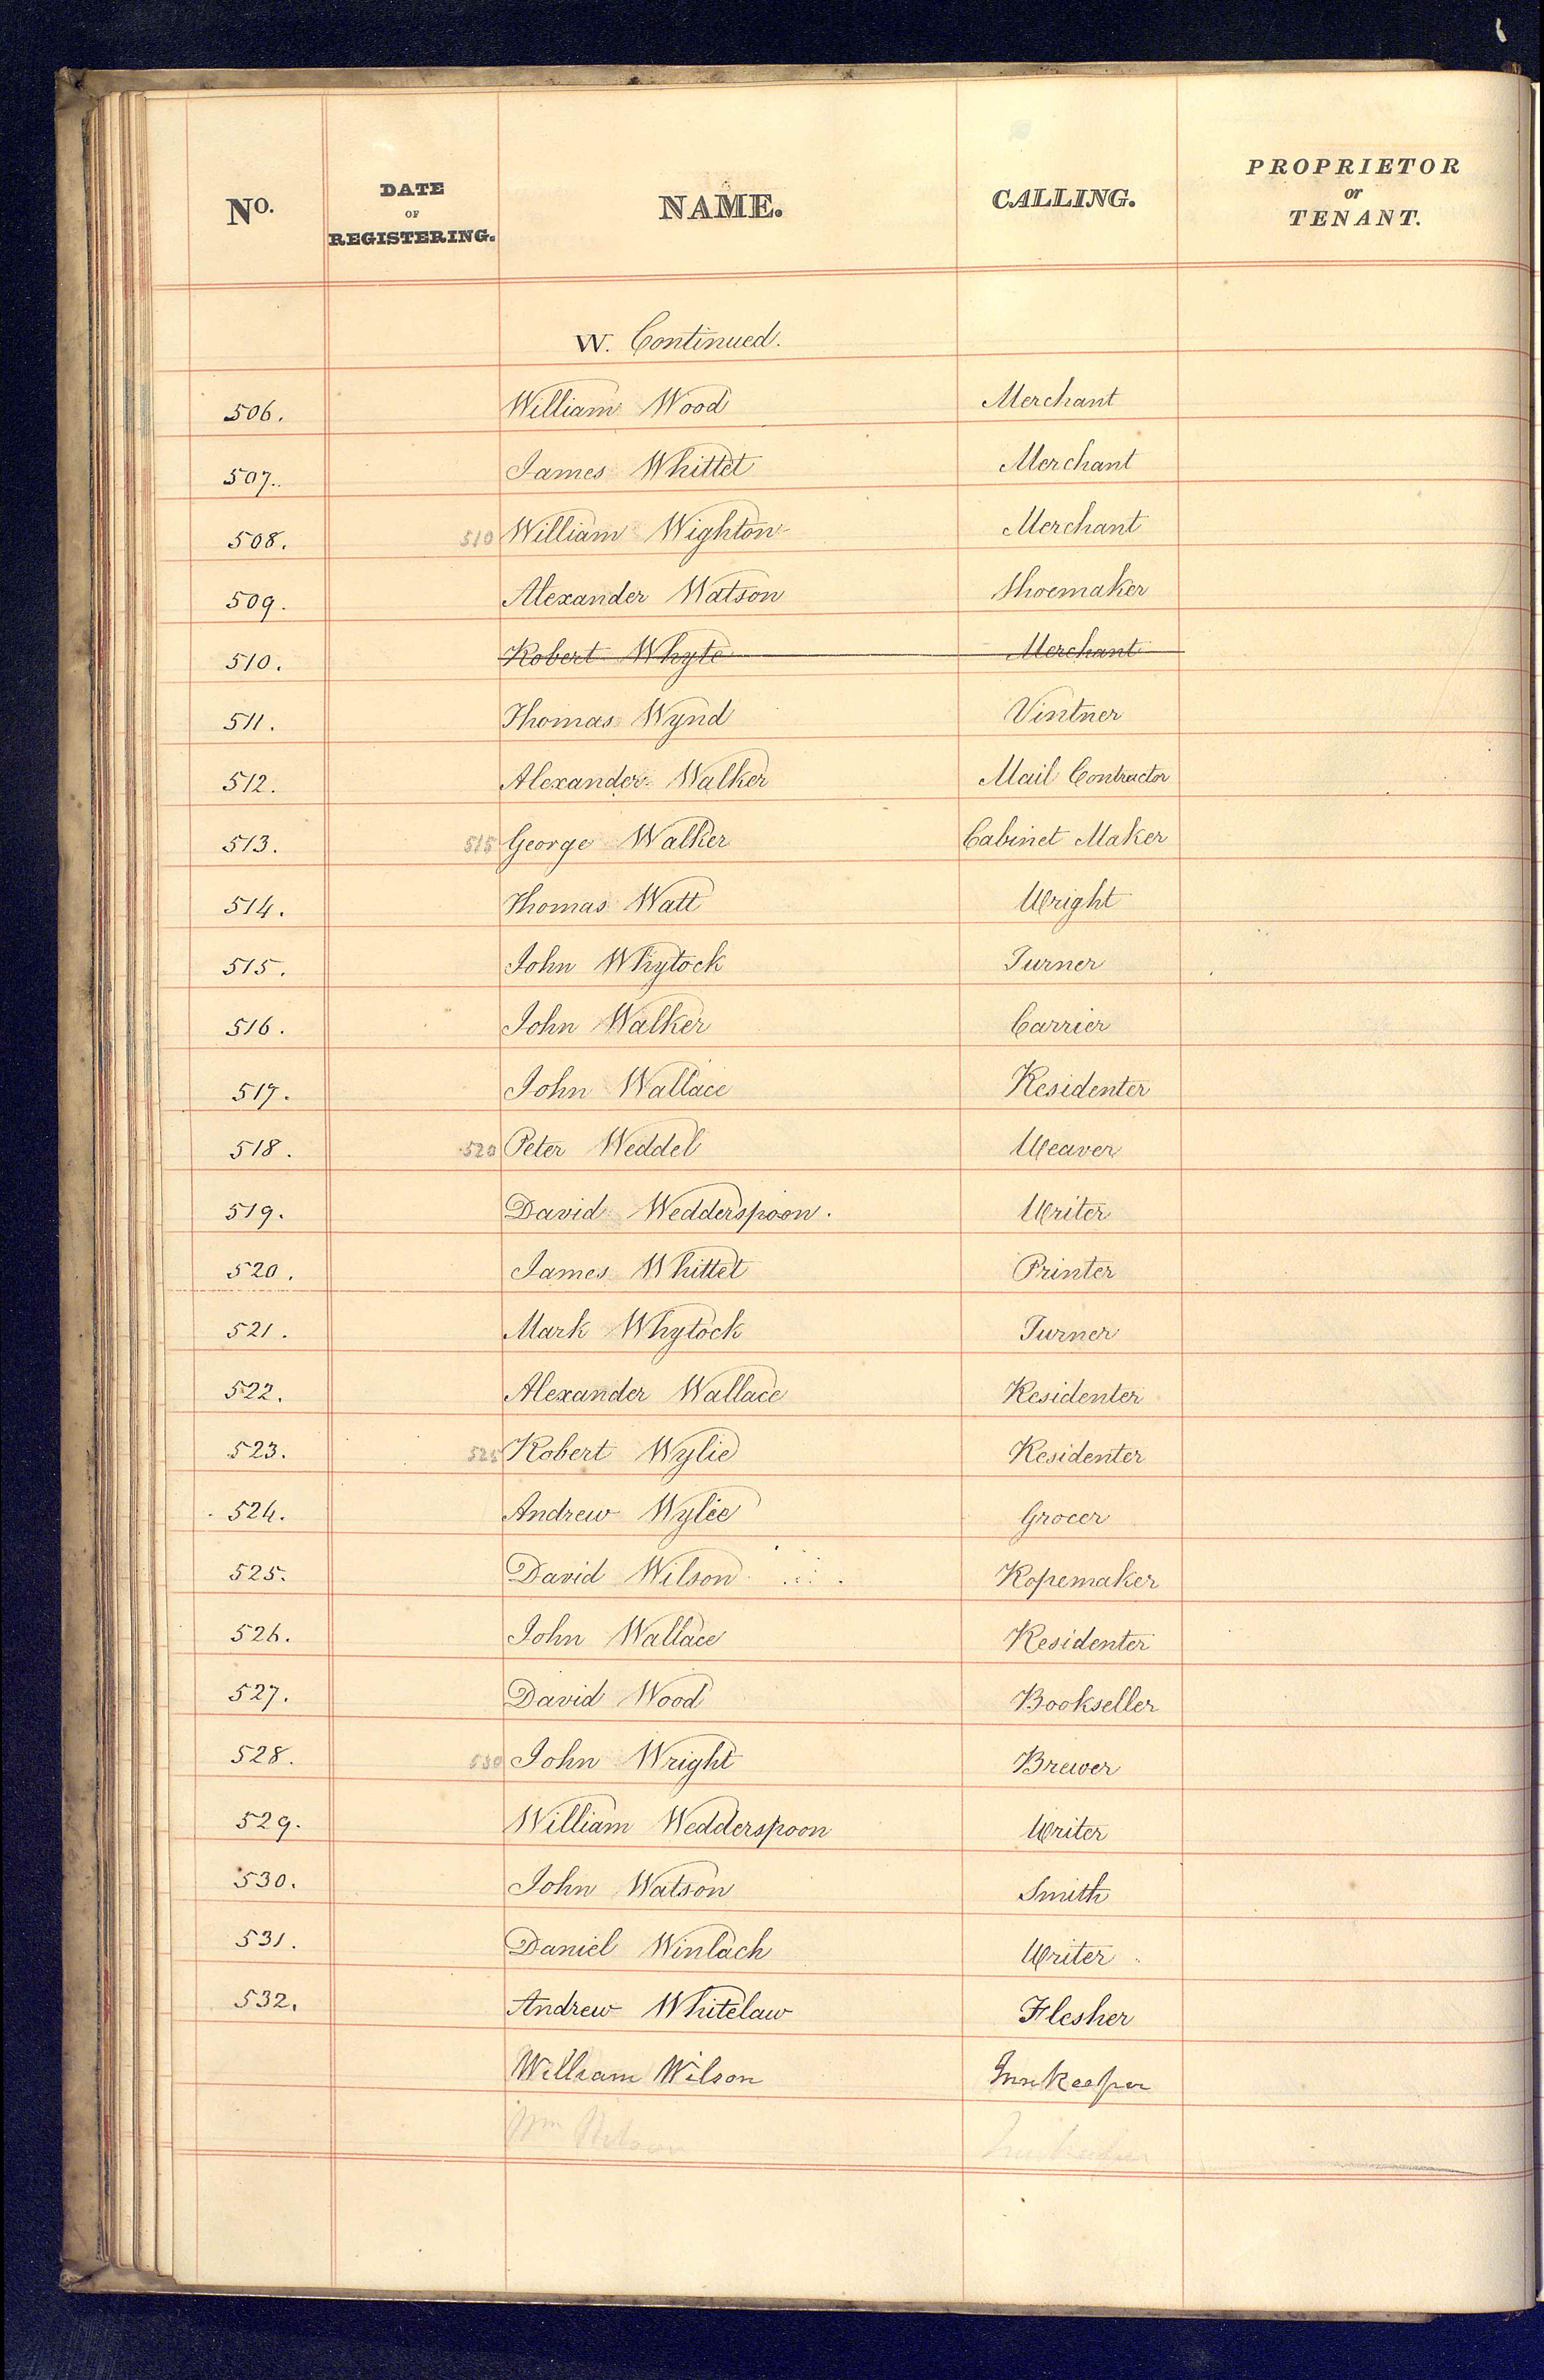 No. DATE OF REGISTERING. NAME. CALLING. PROPRIETOR or TENANT.
W. Continued.
506. William Wood Merchant
507. James Whittet Merchant
508. 510 William Wighton Merchant
509. Alexander Watson Shoemaker
510. Robert Whyte Merchant
511. Thomas Wynd Vintner
512. Alexander Walker Mail Contractor
513. 515 George Walker Cabinet Maker
514. Thomas Watt Wright
515. John Whytock Turner
516. John Walker Carrier
517. John Wallace Residenter
518. 520 Peter Weddel Weaver
519. David Wedderspoon. Writer
520. James Whittet Printer
521. Mark Whytock Turner
522. Alexander Wallace Residenter
523. 525 Robert Wylie Residenter
524. Andrew Wylie Grocer
525. David Wilson Ropemaker
526. John Wallace Residenter
527. David Wood Bookseller
528. 530 John Wright Brewer
529. William Wedderspoon Writer
530. John Watson Smith
531. Daniel Winlach Writer
532. Andrew Whitelaw Flesher
William Wilson Innkeeper
Wm Wilson Innkeeper